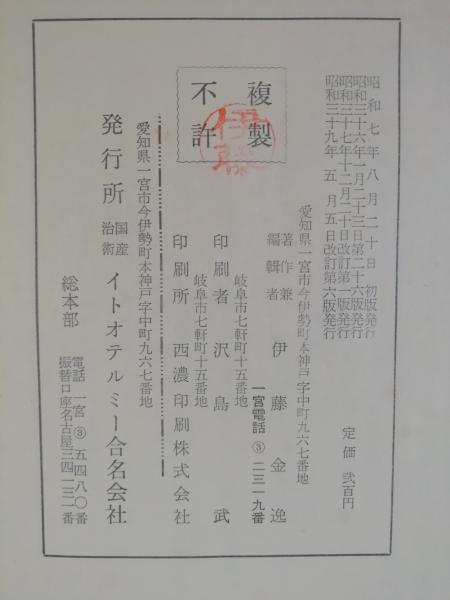 昭和七年八月二十日初版発行
昭和三十六年一月二十三日第二十六版発行
昭和三十七年十二月二十日改訂第一版発行
昭和三十九年五月五日改訂第六版発行
定価 弐百円
複製
不許
伊藤
愛知県一宮市今伊勢町本神戸字中町九六七番地
著作兼
編輯者 伊藤金逸
一宮電話③二三一九番
岐阜市七軒町十五番地
印刷者 沢島武
岐阜市七軒町十五番地
印刷所 西濃印刷株式会社
愛知県一宮市今伊勢町本神戸字中町九六七番地
発行所 国産治術 イトオテルミー合名会社
総本部
電話 一宮③五四八〇番
振替口座名古屋三四一三一番